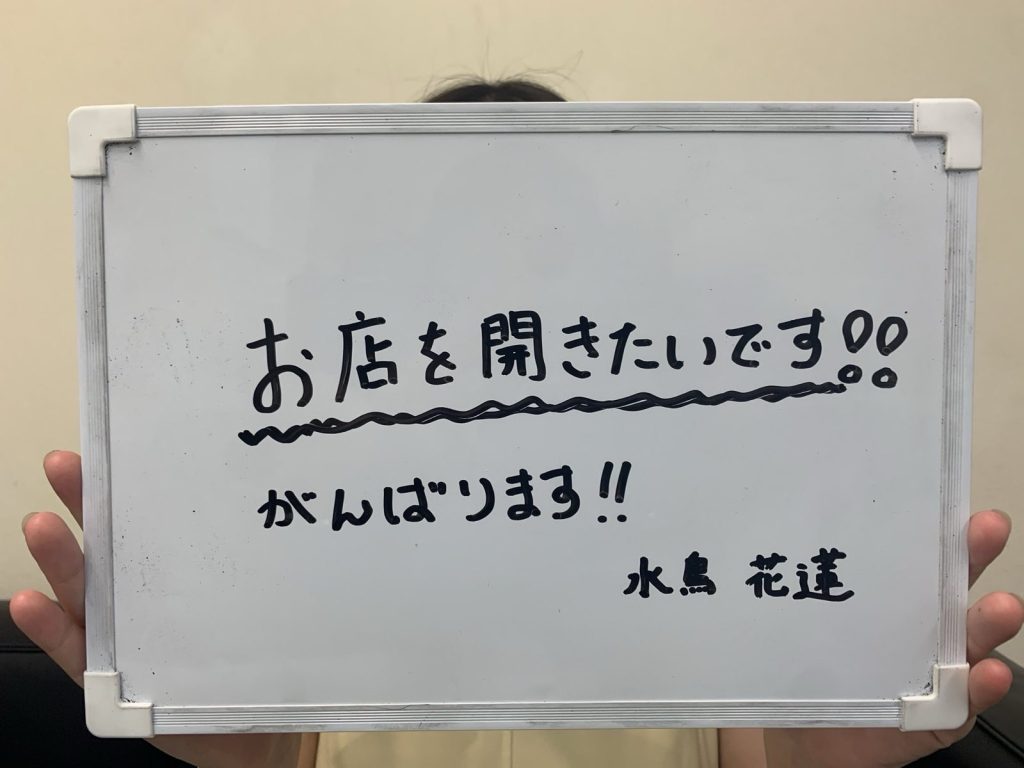 お店を開きたいです!!
がんばります!!
水鳥 花蓮